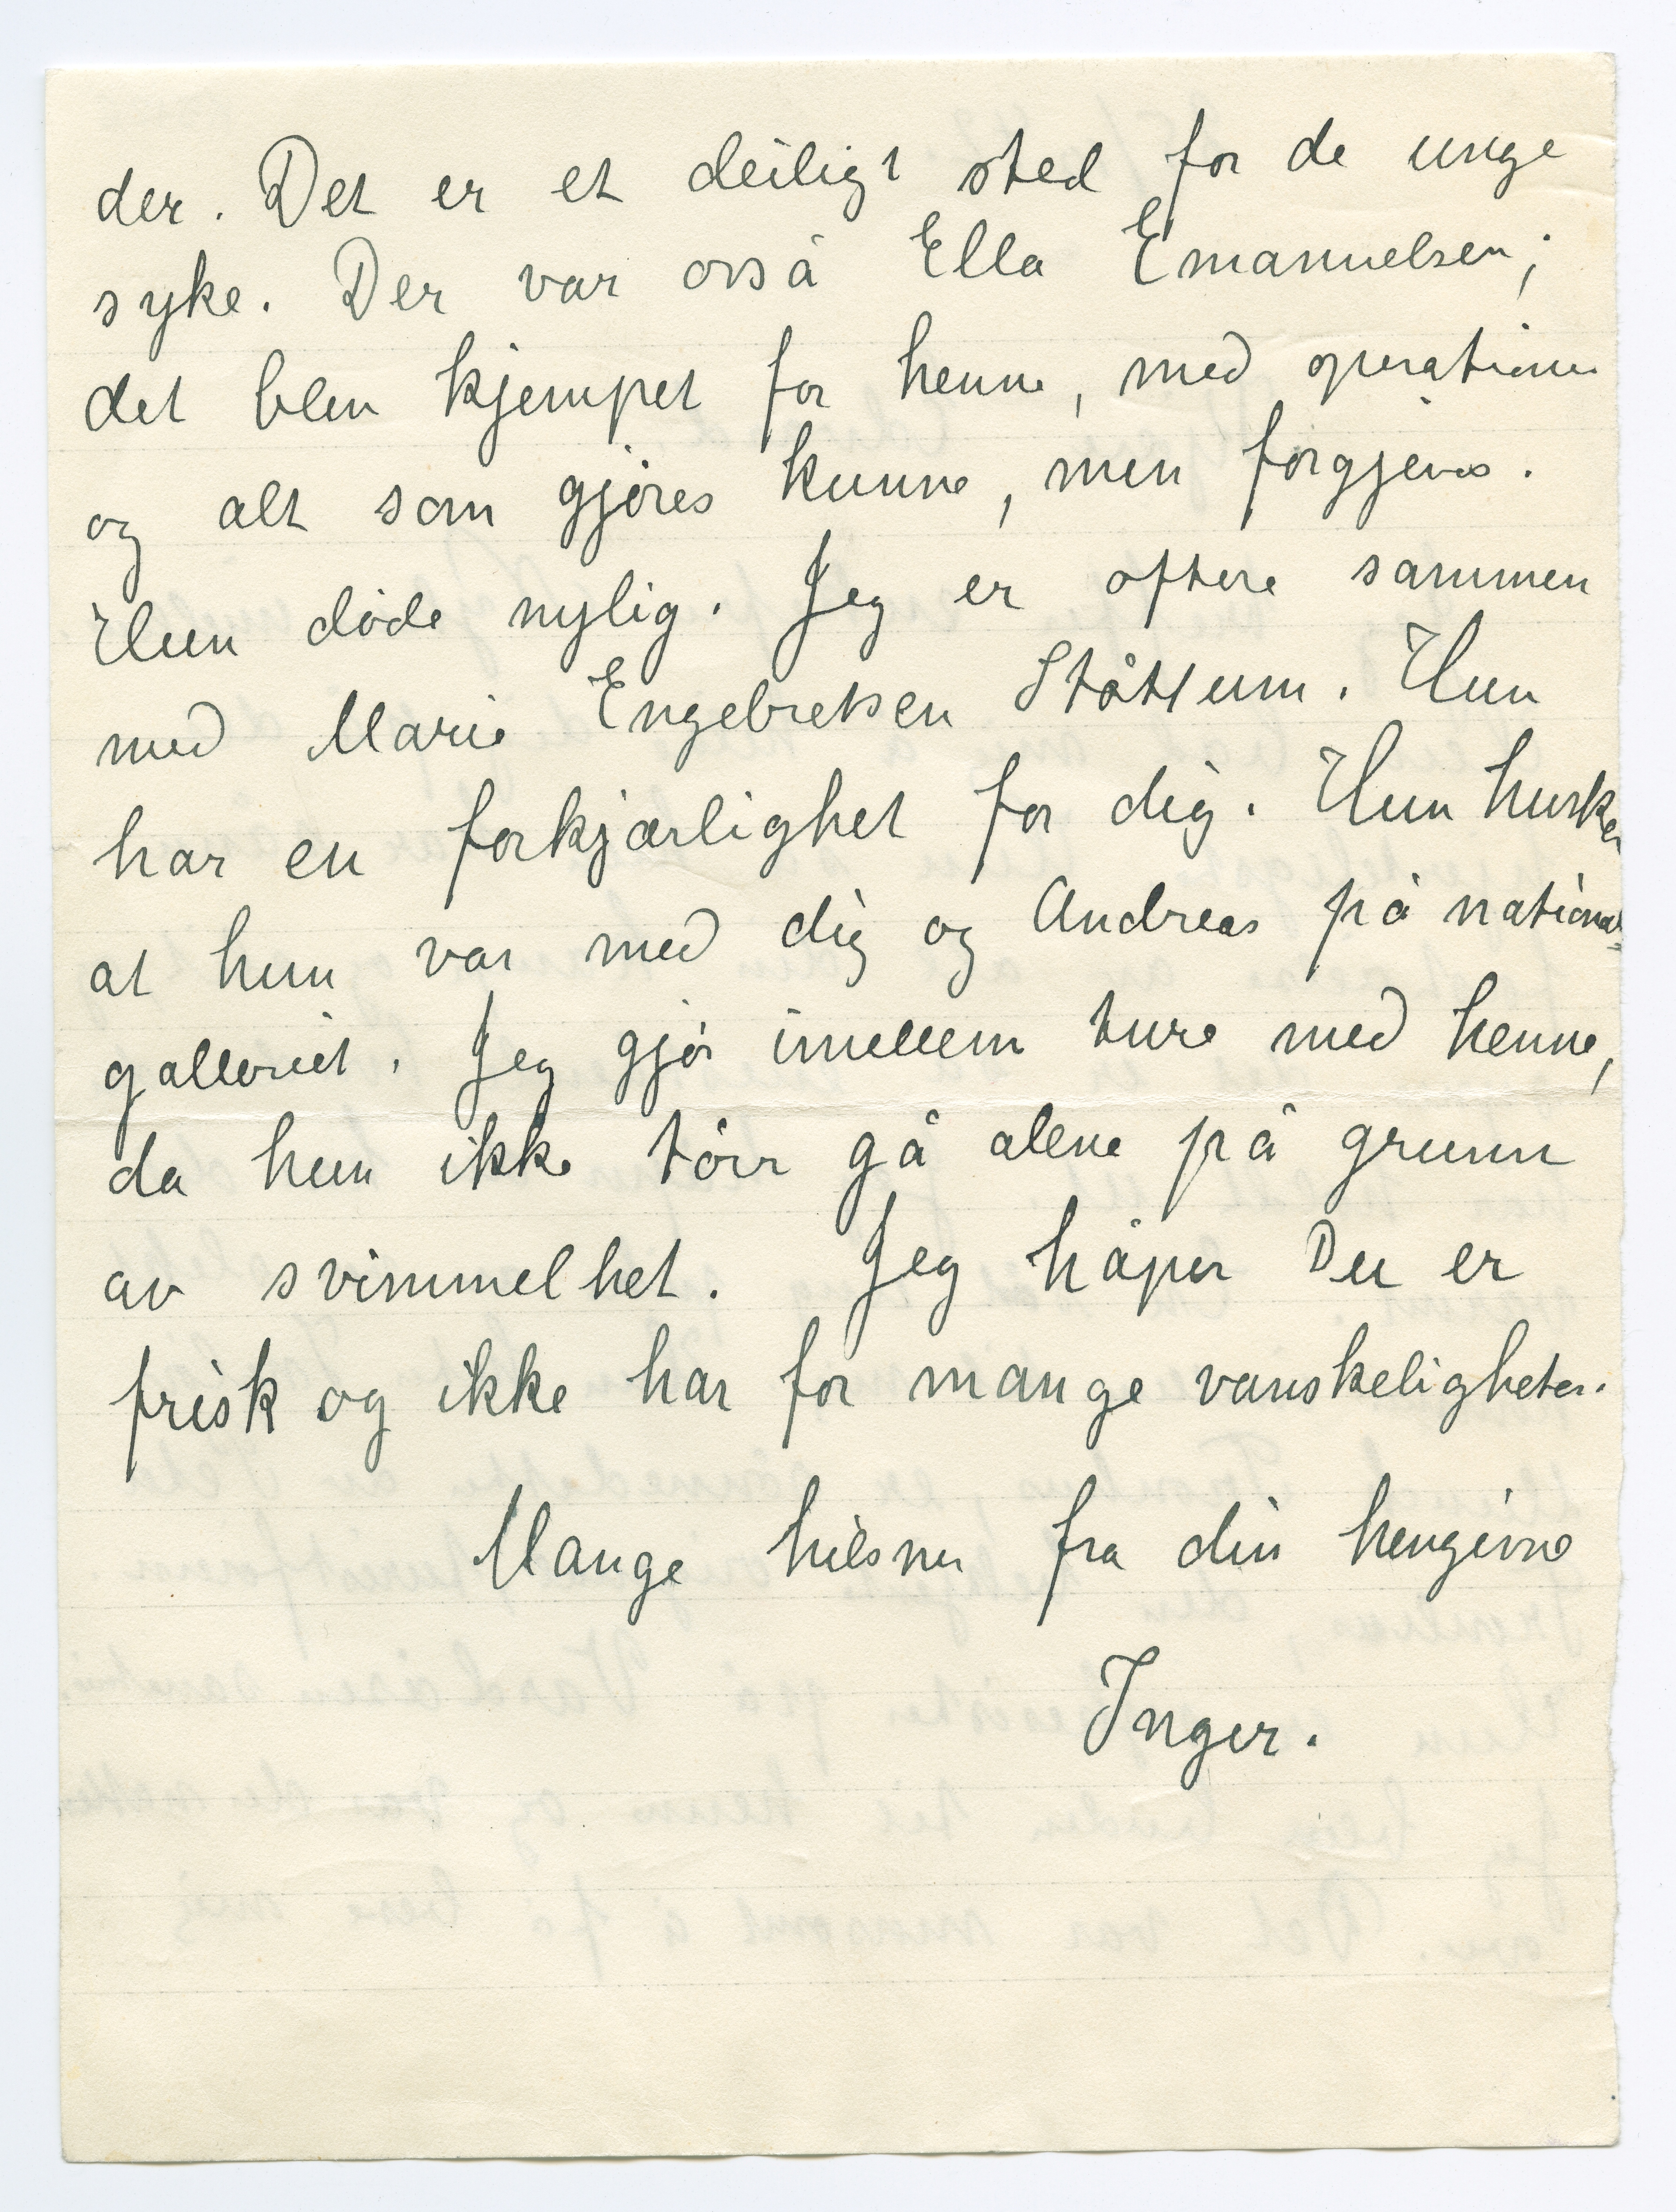 der. Det er et deiligt sted for de unge
syke. Der var osså Ella Emanuelsen;
det blev kjempet for henne, med operationer
og alt som gjöres kunne, men forgjeves.
Hun döde nylig. Jeg er oftere sammen
med Marie Engebretsen Ståtlum. Hun
har en forkjærlighet for dig. Hun husker
at hun var med dig og Andreas på national=
galleriet. Jeg gjör imellem ture med henne,
da hun ikke törr gå alene på grunn
av svimmelhet. Jeg håper Du er
frisk og ikke har for mange vanskeligheter.
Mange hilsner fra din hengivne
Inger.